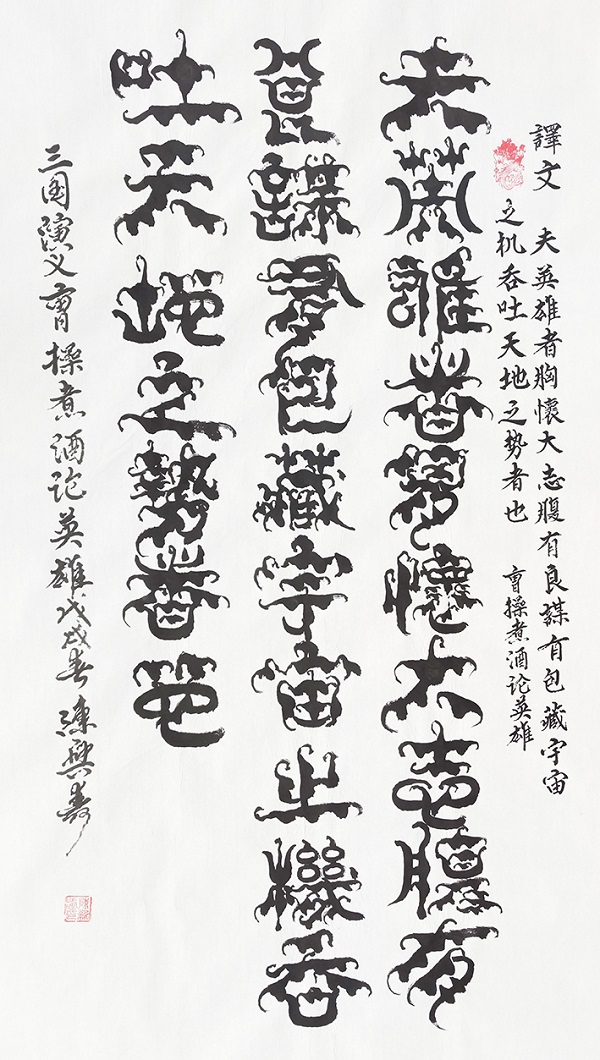 譯文 夫英雄者胸懷大志腹有良謀有包藏宇宙
之机吞吐天地之势者也 曹操煮酒论英雄
夫英雄者胸懷大志腹有
良謀有包藏宇宙之機吞
吐天地之勢者也
三国演义曹操煮酒论英雄戊戌春